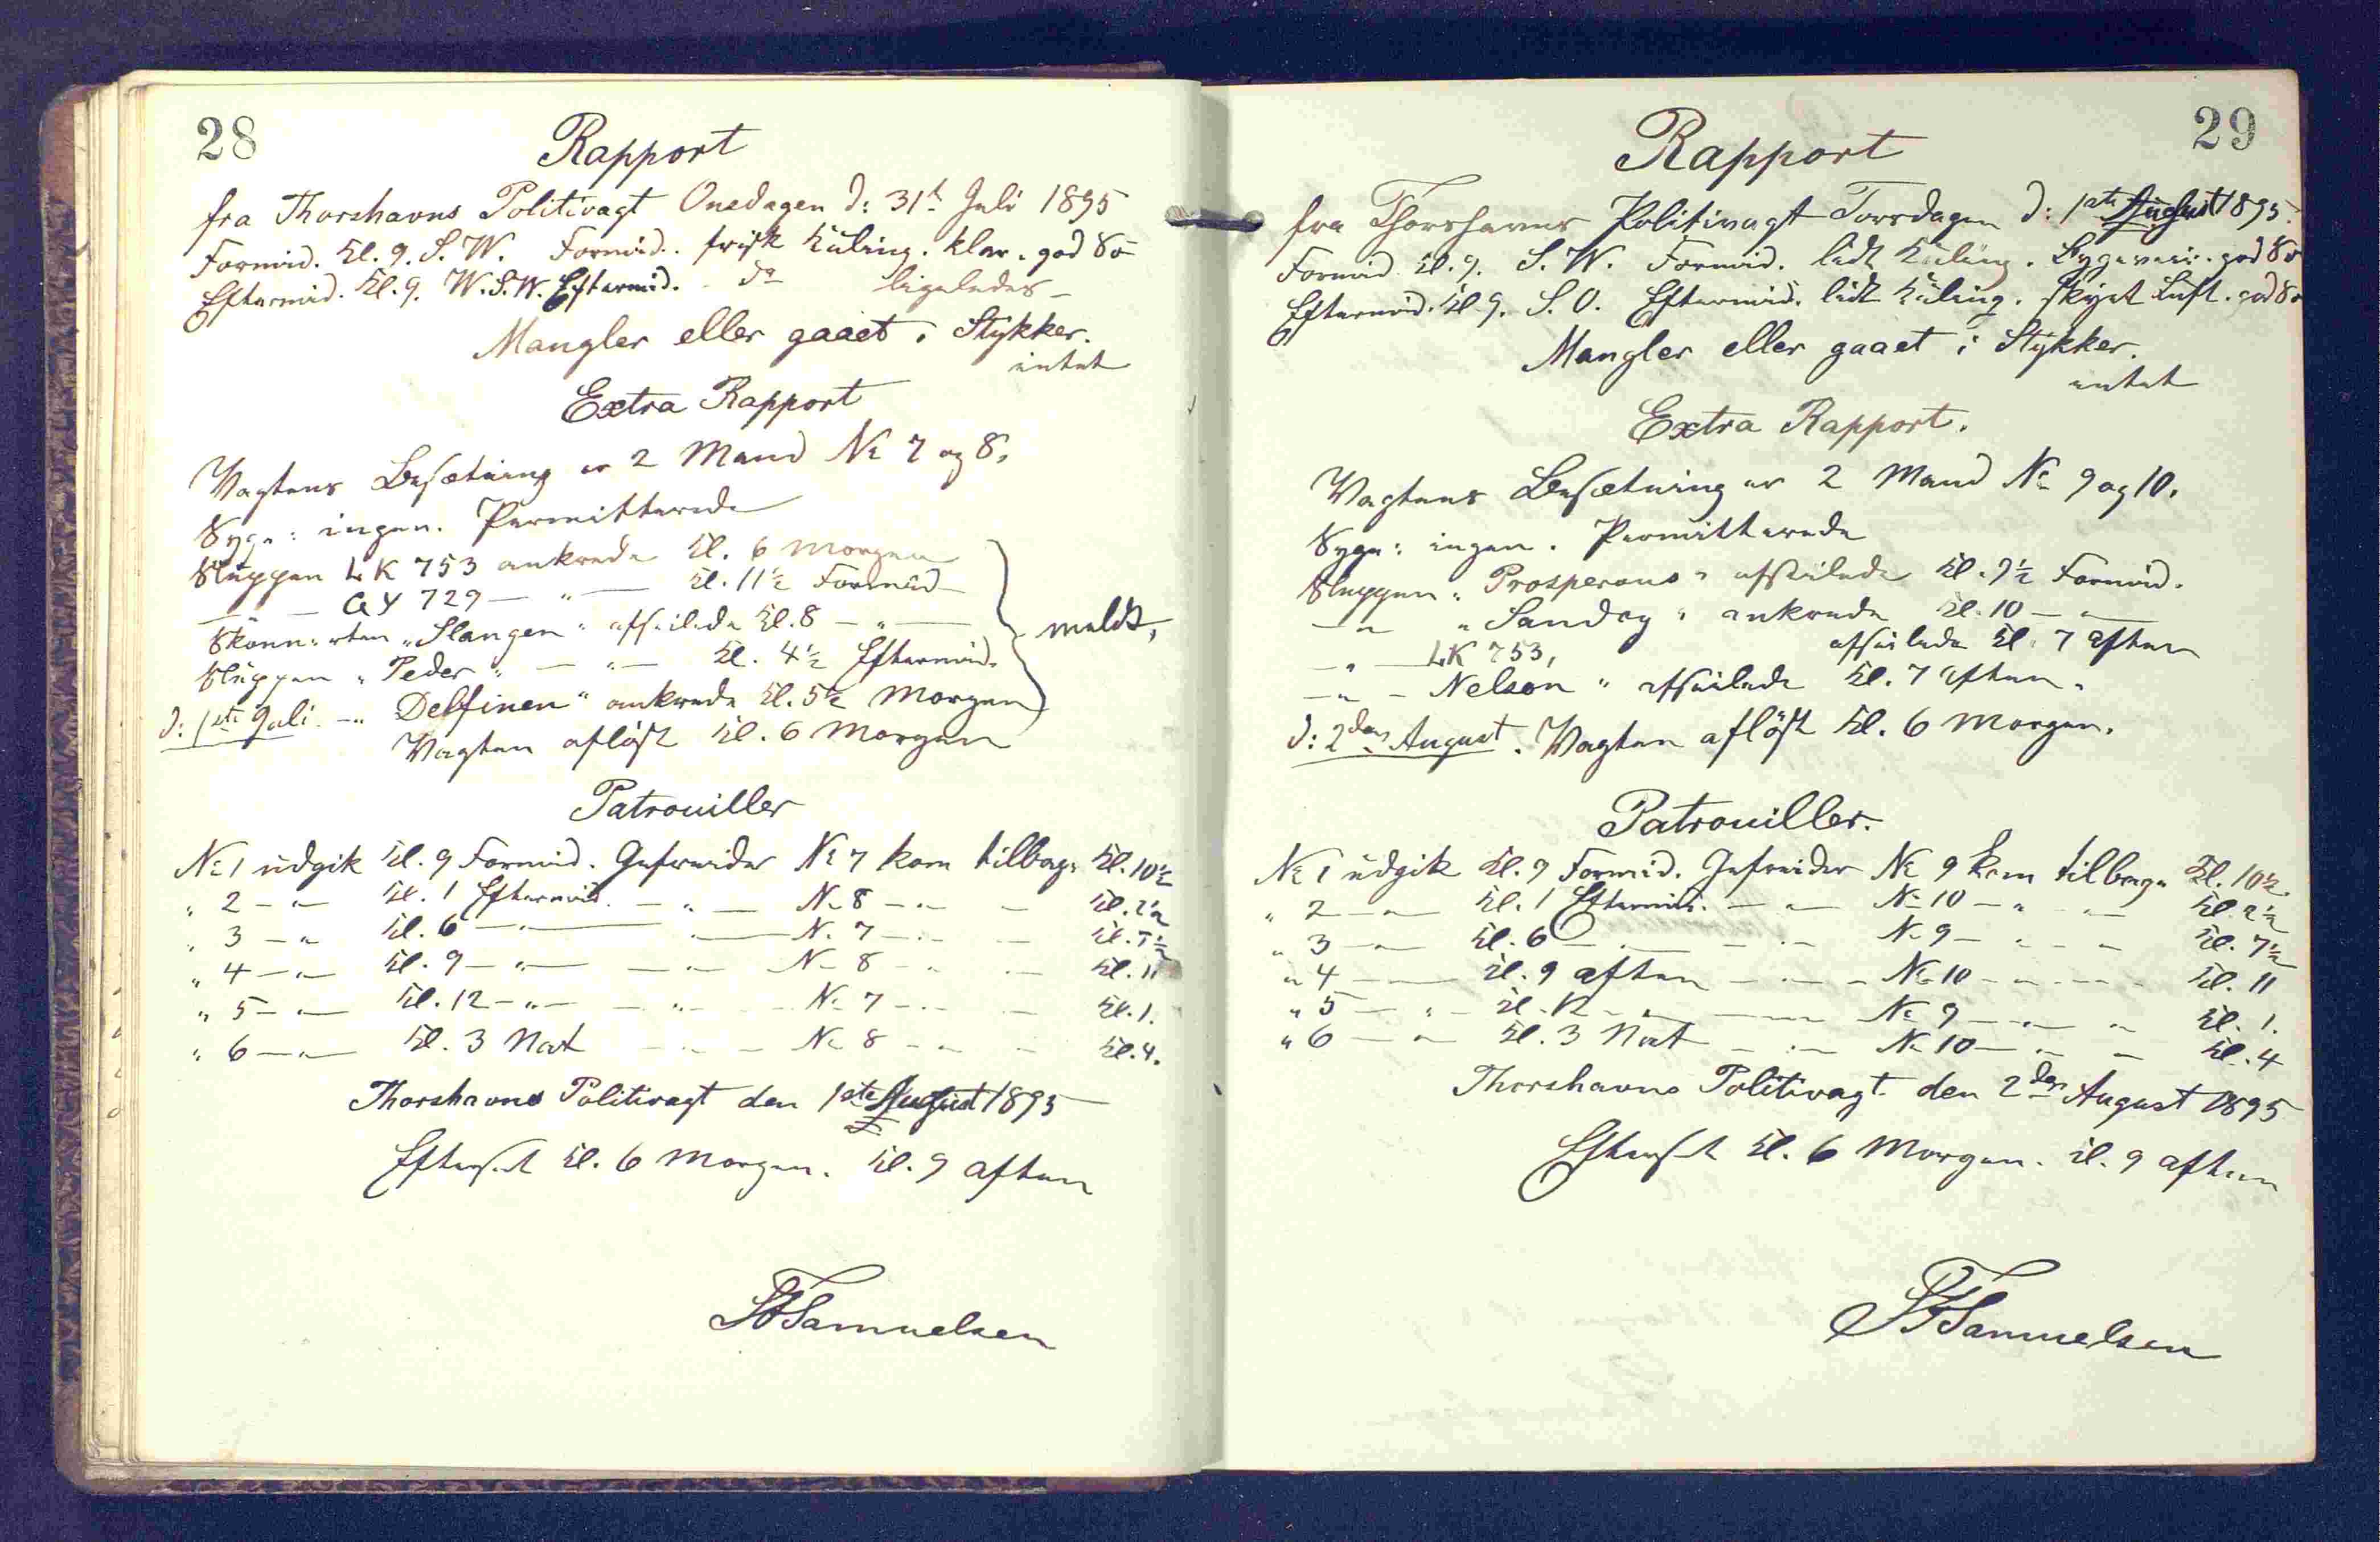 28
Rapport
fra Thorshavns Politivagt Onsdagen d: 31te Juli 1895
Formid. Kl. 9. S.W. Formid. frisk Kuling. klar. god Sø
Eftermid. Kl. 9. W.S.W. Eftermid. do ligeledes
Mangler eller gaaet i Stykker.
intet
Extra Rapport
Vagtens Besætning er 2 Mand No 7 og 8.
Syge: ingen. Permitterede
Sluppen LK 753 ankrede Kl. 6 Morgen
— — GY 729 — " — Kl. 11½ Formid
Skonnerten „Slangen“ afseilede Kl. 8 — " —
meldt,
Sluppen „Peder“ — " — Kl. 4½ Eftermid.
d: 1ste Juli — " Delfinen" ankrede Kl. 5½ Morgen
Vagten afløst Kl. 6 Morgen
Patrouiller
No 1 udgik Kl. 9 Formid. Gefreider No 7 kom tilbage Kl. 10½
" 2 — " — Kl. 1 Eftermid. — " — No 8 — " — Kl. 2½
" 3 — " Kl. 6 — " — " — No 7 — " — Kl. 7½
" 4 — " — Kl. 9 — " — — " — No 8 — " — Kl. 11
" 5 — " — Kl. 12 — " — — " — No 7 — " — Kl. 1.
" 6 — " — Kl. 3 Nat — " — No 8 — " — Kl. 4.
Thorshavns Politivagt den 1ste August 1895
Efterset Kl. 6 Morgen. Kl. 9 aften
Samuelsen
29
Rapport
fra Thorshavns Politivagt Torsdagen d: 1ste August 1895.
Formid Kl. 9. S.W. Formid. lidt Kuling. Bygeveir. god Sø
Eftermid. Kl. 9. S.O. Eftermid. lidt Kuling. skyet Luft. god Sø
Mangler eller gaaet i Stykker.
intet
Extra Rapport.
Vagtens Besætning er 2 Mand No 9 og 10.
Syge: ingen. Permitterede
Sluppen „Prosperous“ afseilede Kl. 9½ Formid.
— " „Sandoy“ ankrede Kl. 10 — "
— " — LK 753, afseilede Kl. 7 Aften
— " — Nelson " afseilede Kl. 7 Aften.
d: 2den August. Vagten afløst Kl. 6 Morgen.
Patrouiller.
No 1 udgik Kl. 9 Formid. Gefreider No 9 kom tilbage Kl. 10½
" 2 — " — Kl. 1 Eftermid. — " — No 10 — " — Kl. 2½
" 3 — " — Kl. 6 — " — — " — No 9 — " — " Kl. 7½
" 4 — — Kl. 9 aften — " — No 10 — " — Kl. 11
" 5 — " — Kl. 12 — " — — No 9 — " — " Kl. 1.
" 6 — " — Kl. 3 Nat — " — No 10 — " — Kl. 4
Thorshavns Politivagt den 2den August 1895
Efterset Kl. 6 Morgen. Kl. 9 aften
Samuelsen